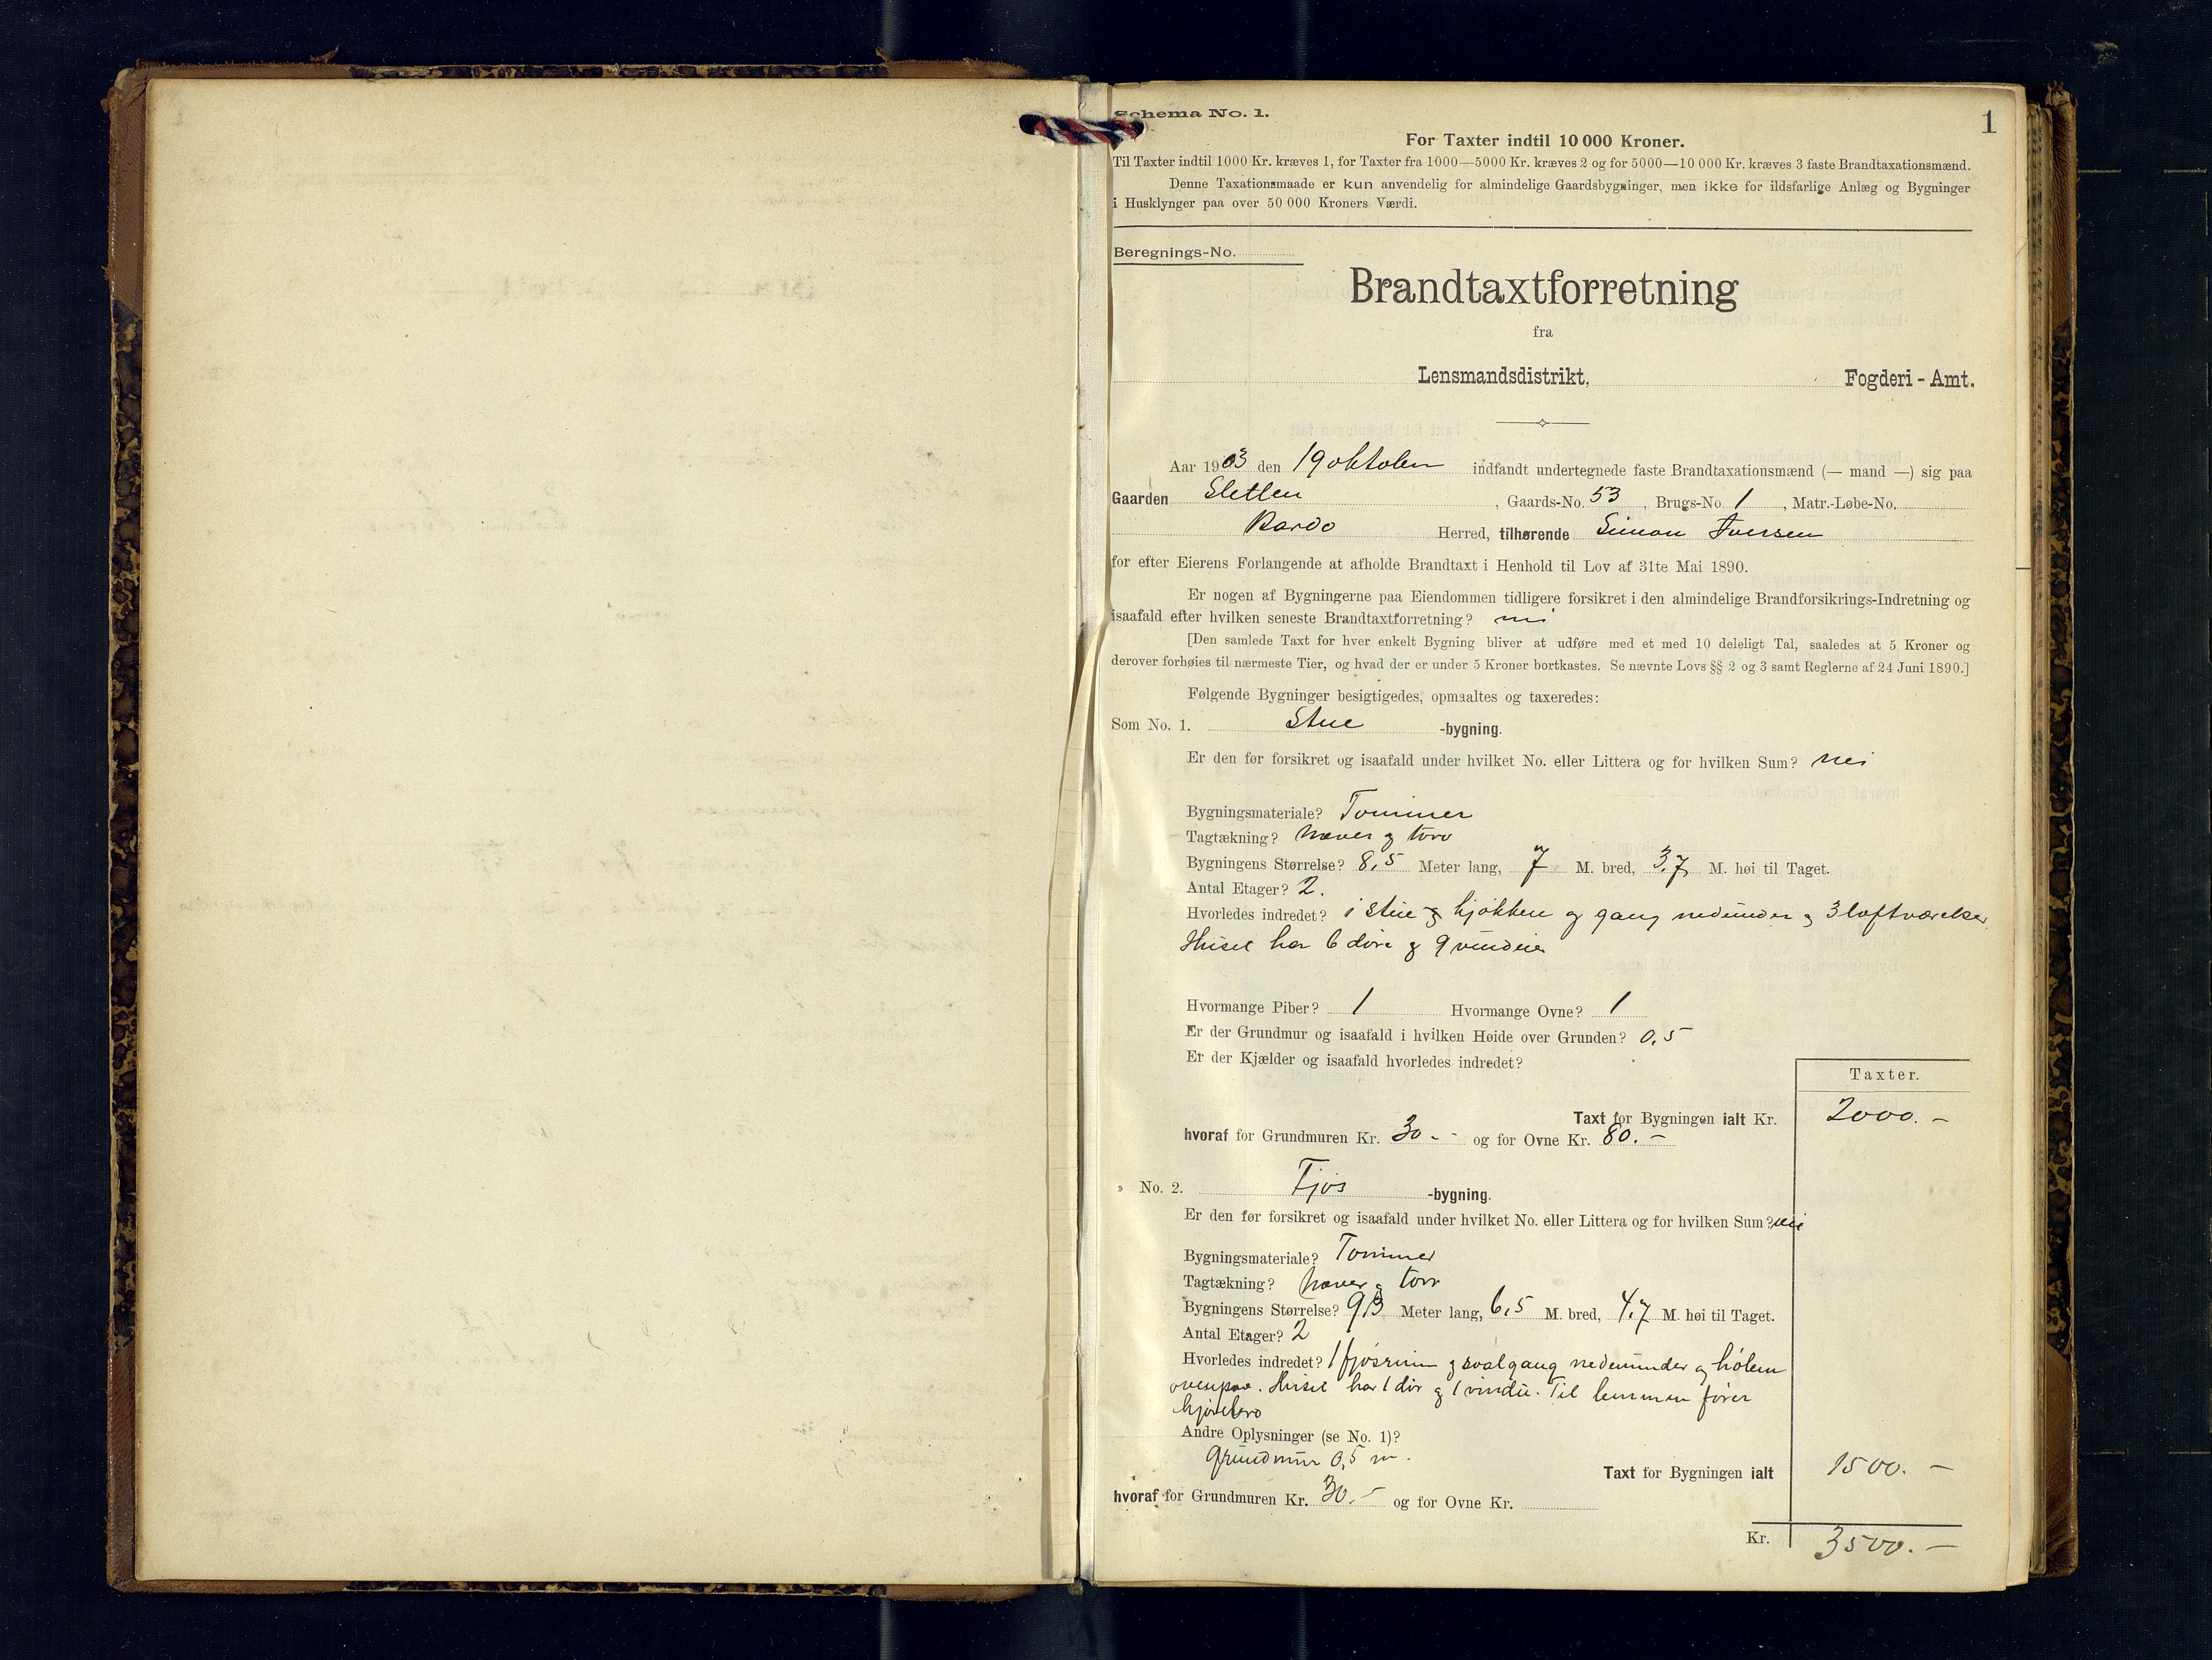 1
Schema No. 1.
For Taxter indtil 10 000 Kroner.
Til Taxter indtil 1000 Kr. kræves 1, for Taxter fra 1000—5000 Kr. kræves 2 og for 5000—10 000 Kr. kræves 3 faste Brandtaxationsmænd.
Denne Taxationsmaade er kun anvendelig for almindelige Gaardsbygninger, men ikke for ildsfarlige Anlæg og Bygninger
i Husklynger paa over 50 000 Kroners Værdi.
Beregnings-No.
Brandtaxtforretning
fra
Lensmandsdistrikt, Fogderi - Amt.
Aar 1903 den 19 oktober indfandt undertegnede faste Brandtaxationsmænd (— mand —) sig paa
Gaarden Sletten, Gaards-No. 53, Brugs-No. 1, Matr.-Løbe-No.
Bardo Herred, tilhørende Simon Iversen
for efter Eierens Forlangende at afholde Brandtaxt i Henhold til Lov af 31te Mai 1890.
Er nogen af Bygningerne paa Eiendommen tidligere forsikret i den almindelige Brandforsikrings-Indretning og
isaafald efter hvilken seneste Brandtaxtforretning? nei
[Den samlede Taxt for hver enkelt Bygning bliver at udføre med et med 10 deleligt Tal, saaledes at 5 Kroner og
derover forhøies til nærmeste Tier, og hvad der er under 5 Kroner bortkastes. Se nævnte Lovs §§ 2 og 3 samt Reglerne af 24 Juni 1890.]
Følgende Bygninger besigtigedes, opmaaltes og taxeredes:
Som No. 1. Stue -bygning.
Er den før forsikret og isaafald under hvilket No. eller Littera og for hvilken Sum? nei
Bygningsmateriale? Tømmer
Tagtækning? næver og torv
Bygningens Størrelse? 8,5 Meter lang, 7 M. bred, 3,7 M. høi til Taget.
Antal Etager? 2.
Hvorledes indredet? 1 stue kjøkken og gang nedunder og 3 loftværelser
Huset har 6 døre og 9 vinduer
Hvormange Piber? 1 Hvormange Ovne? 1
Er der Grundmur og isaafald i hvilken Høide over Grunden? 0,5
Er der Kjælder og isaafald hvorledes indredet?
Taxter.
Taxt for Bygningen ialt Kr. 2000.-
hvoraf for Grundmuren Kr. 30.- og for Ovne Kr. 80.-
» No. 2. Fjøs -bygning.
Er den før forsikret og isaafald under hvilket No. eller Littera og for hvilken Sum? nei
Bygningsmateriale? Tømmer
Tagtækning? næver og torv
Bygningens Størrelse? 9,3 Meter lang, 6,5 M. bred, 4,7 M. høi til Taget.
Antal Etager? 2
Hvorledes indredet? 1 fjøsrum og svalgang nedenunder og hølem
ovenpaa. Huset har 1 dør og 1 vindu. Til lemmen fører
kjørebro
Andre Oplysninger (se No. 1)?
Grundmur 0,5 m.
Taxt for Bygningen ialt 1500.-
hvoraf for Grundmuren Kr. 30.- og for Ovne Kr.
Kr. 3500.-